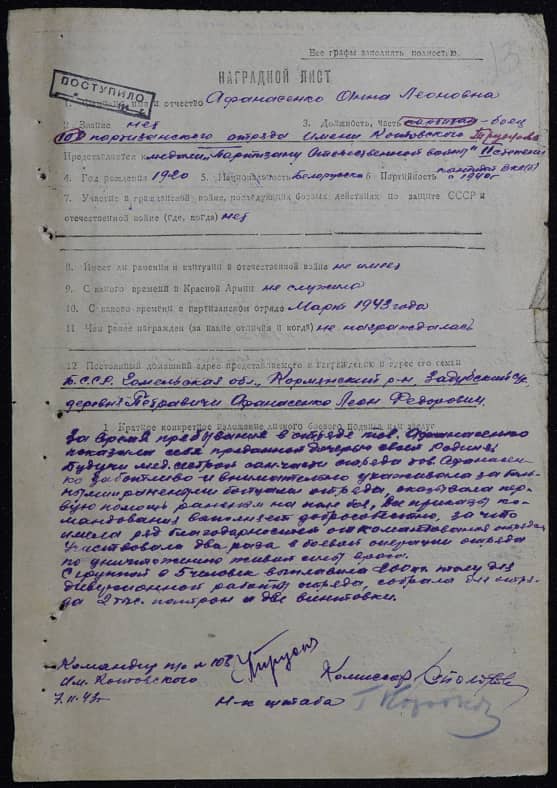 Все графы заполнять полностью.
13
НАГРАДНОЙ ЛИСТ
ПОСТУПИЛО
1. Фамилия, имя и отчество Афанасенко Анна Леоновна
2 Звание нет 3. Должность, часть боец
партизанского отряда имени Котовского
Представляется к медали „Партизану Отечественной войны" II степени
4. Год рождения 1920 5. Национальность Белоруска 6 Партийность кандидат ВКП(б)
с 1940г
7. Участие в гражданской войне, последующих боевых действиях по защите СССР и
отечественной войне (где, когда) нет
8. Имеет ли ранения и контузии в отечественной войне не имеет
9. С какого времени в Красной Армии не служила
10. С какого времени в партизанском отряде Март 1943 года
11 Чем ранее награжден (за какие отличия и когда) не награждалась
12 Постоянный домашний адрес представляемого к награждению и адрес его семьи
Б.С.С.Р. Гомельская обл., Кормянский р-н, Задубский с/с
деревня Петравичи Афанасенко Леон Федорович
1 Краткое конкретное изложение личного боевого подвига или заслуг
За время пребывания в отряде тов. Афанасенко
показала себя преданной дочерью своей Родины.
Будучи мед. сестрой санчасти отряда тов. Афанасен-
ко заботливо и внимательно ухаживала за боль-
ными и ранеными бойцами отряда, оказывала пер-
вую помощь раненым на поле боя, Все приказы ко-
мандования выполняет добросовестно, за что
имела ряд благодарностей от командования отряда.
Участвовала два раза в боевой операции отряда
по уничтожению живой силы врага.
С группой в 5 человек для
диверсионной работы отряда, собрала для отря-
да 2 тыс. патрон и две винтовки.
Командир п/о № 108
Им. Котовского
7.11.43г
Комиссар
Н-к штаба